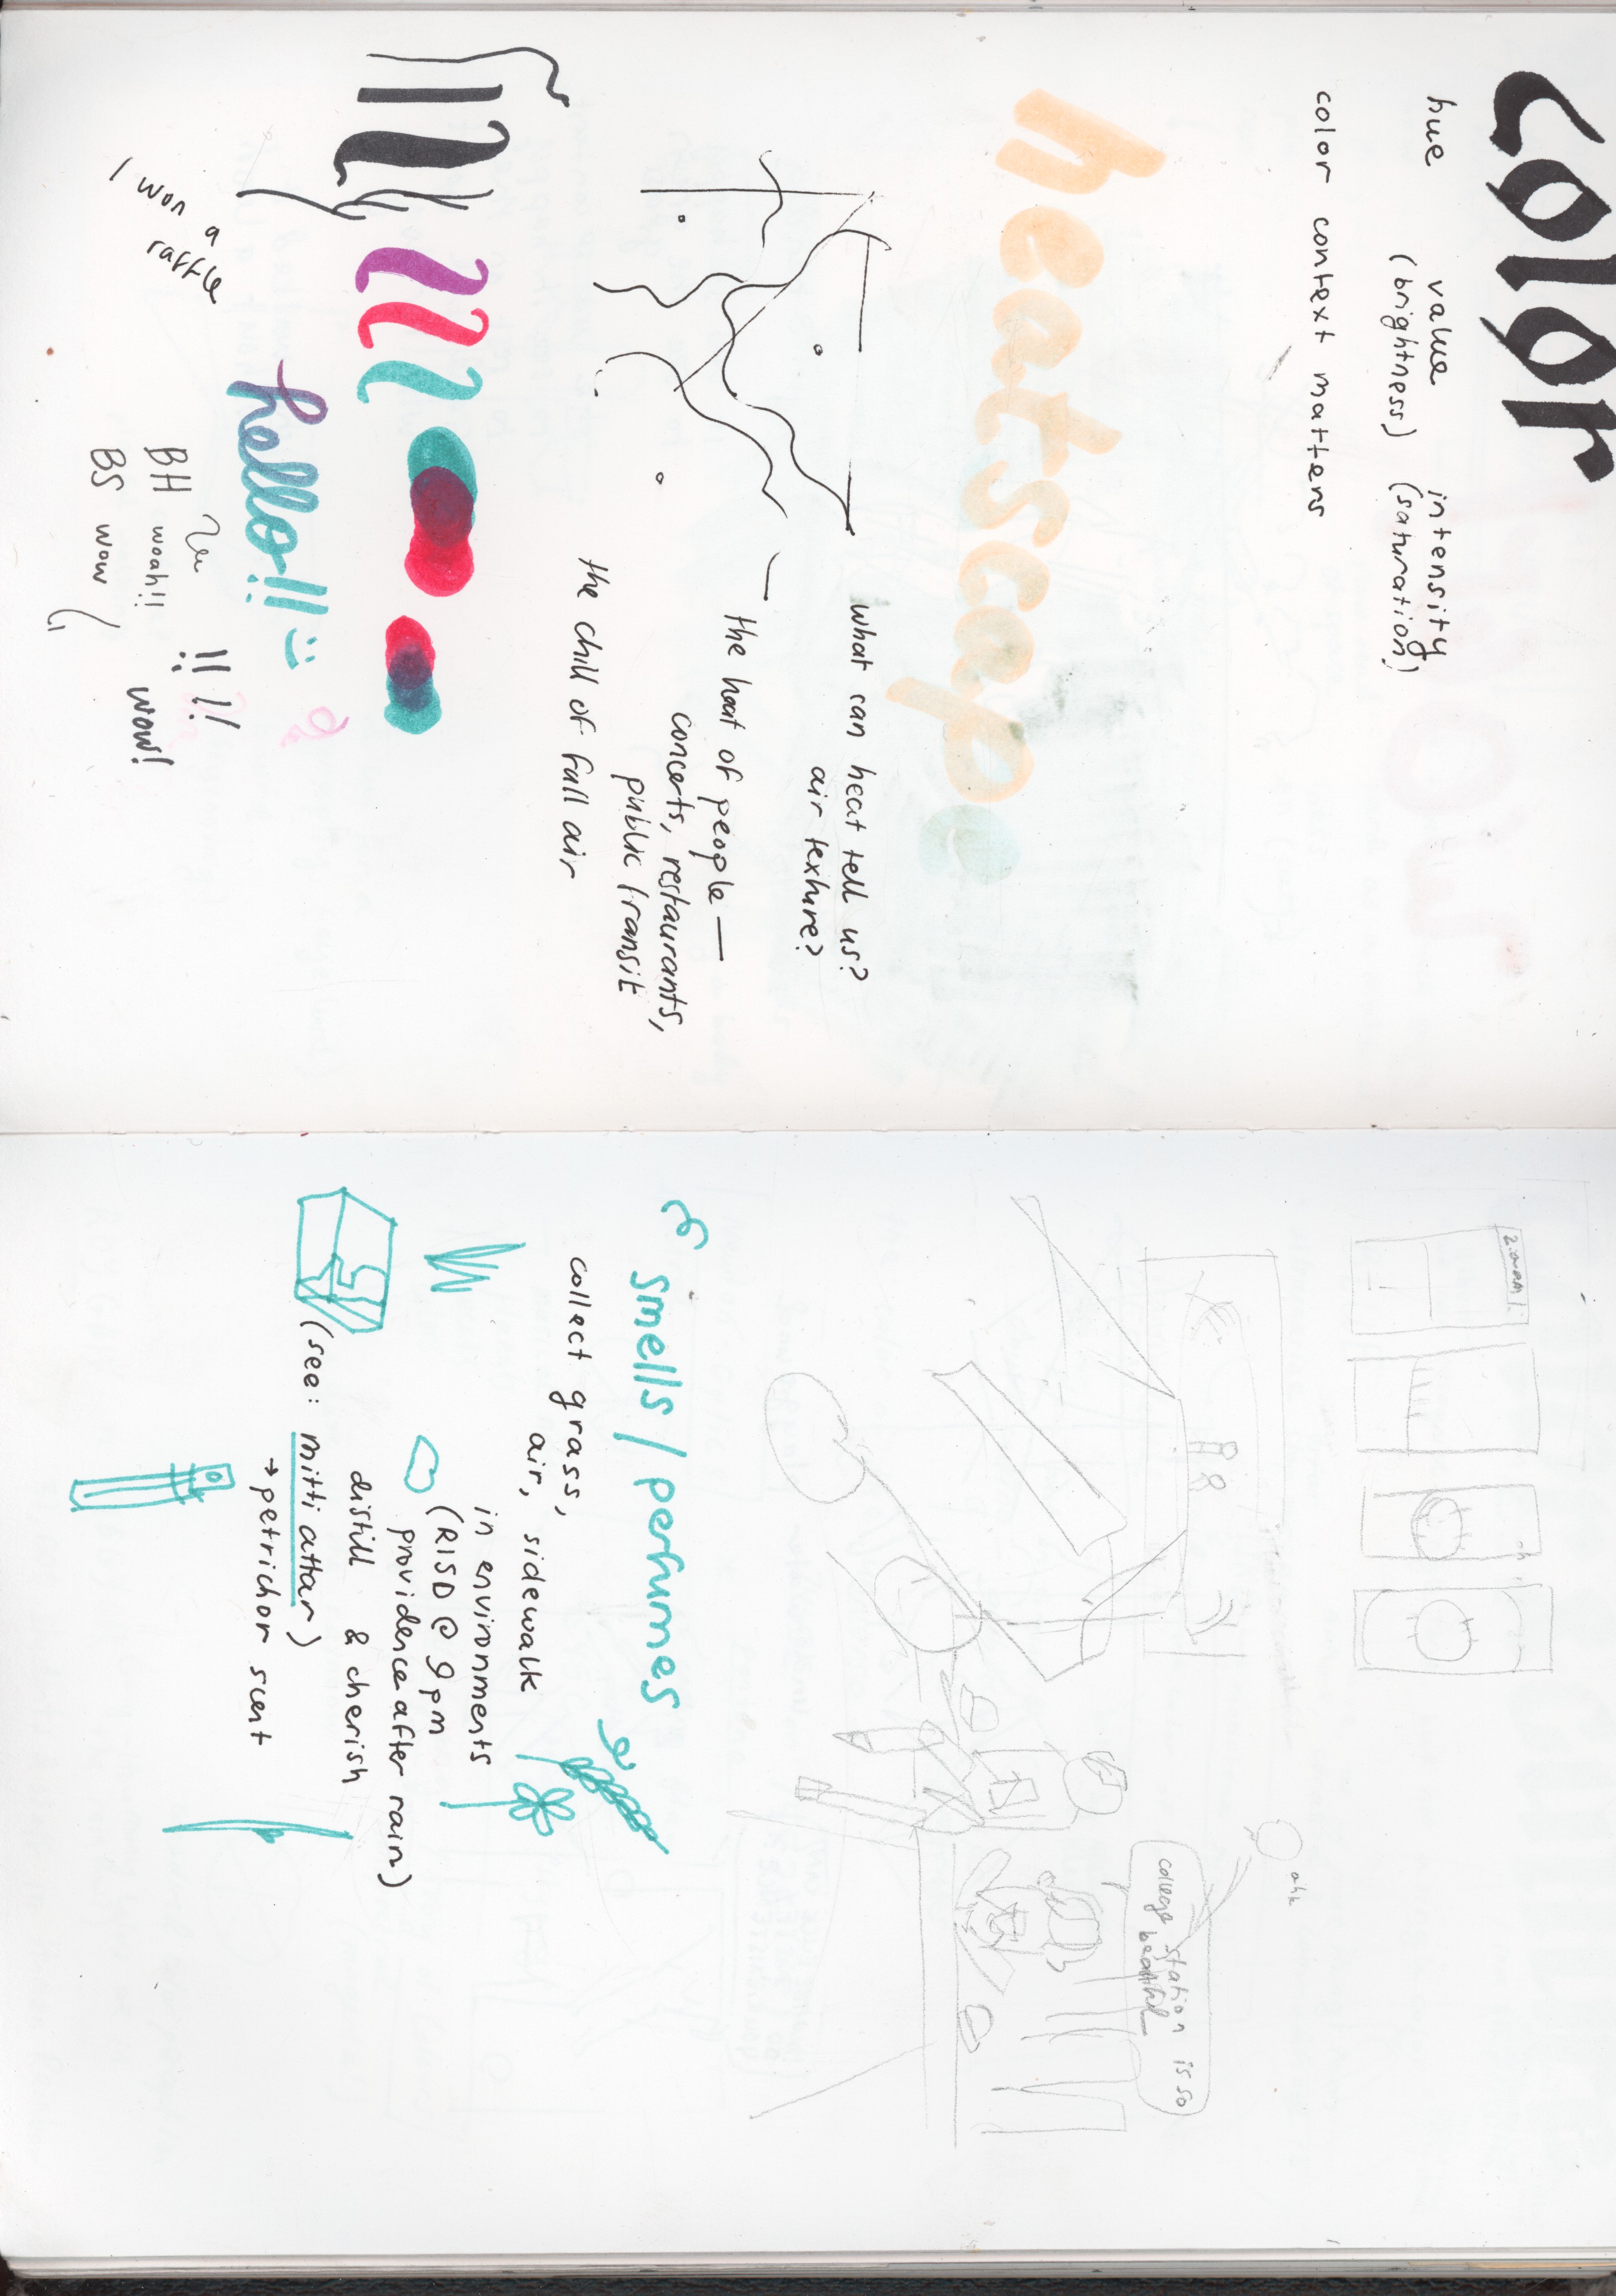 color
hue value intensity
(brightness) (saturation)
color context matters
heatscape
what can heat tell us?
air texture?
the heat of people —
concerts, restaurants,
public transit
the chill of fall air
hello!! :)
I won a
raffle
BH woah!!
BS wow
!! !!
wow!
2:00am
oh
ahh
college station is so
beautiful
smells / perfumes
collect grass,
air, sidewalk
in environments
(RISD @ 9pm
providence after rain)
distill & cherish
(see: mitti attar)
→ petrichor scent